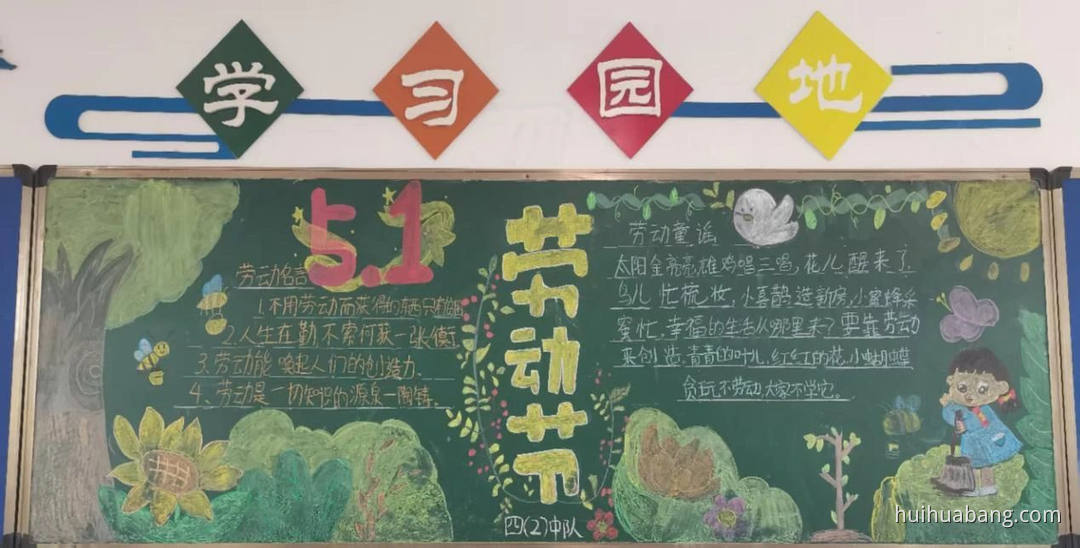 学习园地
5.1
劳动节
劳动名言
1.不用劳动而获得的东西只有贫困
2.人生在勤不索何获一张衡
3、劳动能唤起人们的创造力。
4、劳动是一切知识的源泉一陶铸。
劳动童谣
太阳金亮亮,雄鸡唱三唱,花儿醒来了
鸟儿忙梳妆,小喜鹊造新房,小蜜蜂采
蜜忙。幸福的生活从哪里来?要靠劳动
来创造.青青的叶儿,红红的花,小蝴蝶
贪玩不劳动,大家不学它。
四(2)中队
huihuabang.com